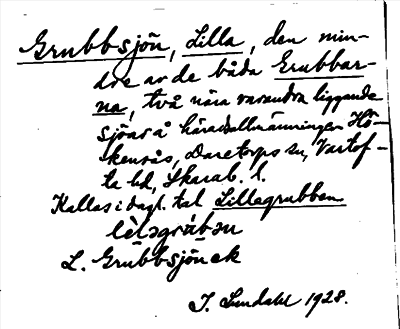 Grubbsjön, Lilla, den min-
dre av de båda Grubbar-
na, två nära varandra liggande
sjöar å häradsallmänningen Hö-
kensås, Daretorps sn, Vartof-
ta hd, Skarab. l.
Kallas i dagl. tal Lillagrubben
lèlagrúbən
L. Grubbsjön ek
J. Lundahl 1928.